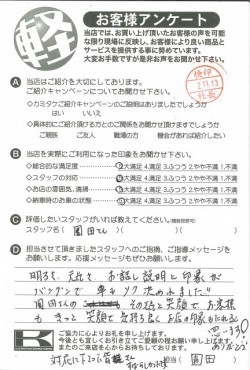 軽
お客様アンケート
当店では、お買い上げ頂いたお客様の声を可能
な限り現場に反映し、お客様により良い商品と
サービスを提供する事に努めています。
大変お手数ですが是非お声をお聞かせ下さい。
検印
2.11.13
社長
A 当店はご紹介を大切にしております。
ご紹介キャンペーンについてお聞かせ下さい。
◇カミタケご紹介キャンペーンのご説明はありましたでしょうか
はい いいえ
◇具体的にご紹介頂ける方とのご関係をお聞かせ頂けますでしょうか
ご親戚 ご友人 職場の方 機会があれば紹介したい
B 当店を実際にご利用になった印象をお聞かせ下さい。
◇総合的な満足度 5.大満足 4.満足 3.ふつう 2.やや不満 1.不満
◇スタッフの対応 5.大満足 4.満足 3.ふつう 2.やや不満 1.不満
◇お店の雰囲気、清掃 5.大満足 4.満足 3.ふつう 2.やや不満 1.不満
◇納車時のお車の状態 5.大満足 4.満足 3.ふつう 2.やや不満 1.不満
C 評価したいスタッフがいれば教えてください。(複数回答可)
スタッフ名( 園田さん )( )
D 担当させて頂きましたスタッフへのご指摘、ご指導メッセージを
お願いします。応援メッセージもぜひお願いします。
明るく、元気で、お話し説明と印象が
バツグンで 車もソク決めました!!
園田さんの その元気と笑顔で お客様
も きっと 笑顔で 気持ち良く お店の印象も
思います
ありがとう
K ご協力に心よりお礼を申し上げます。
今後とも宜しくお引き立てご愛顧の程お願い申し上げます。
またのご来店を心よりお待ちしております。
担当( 園田 )